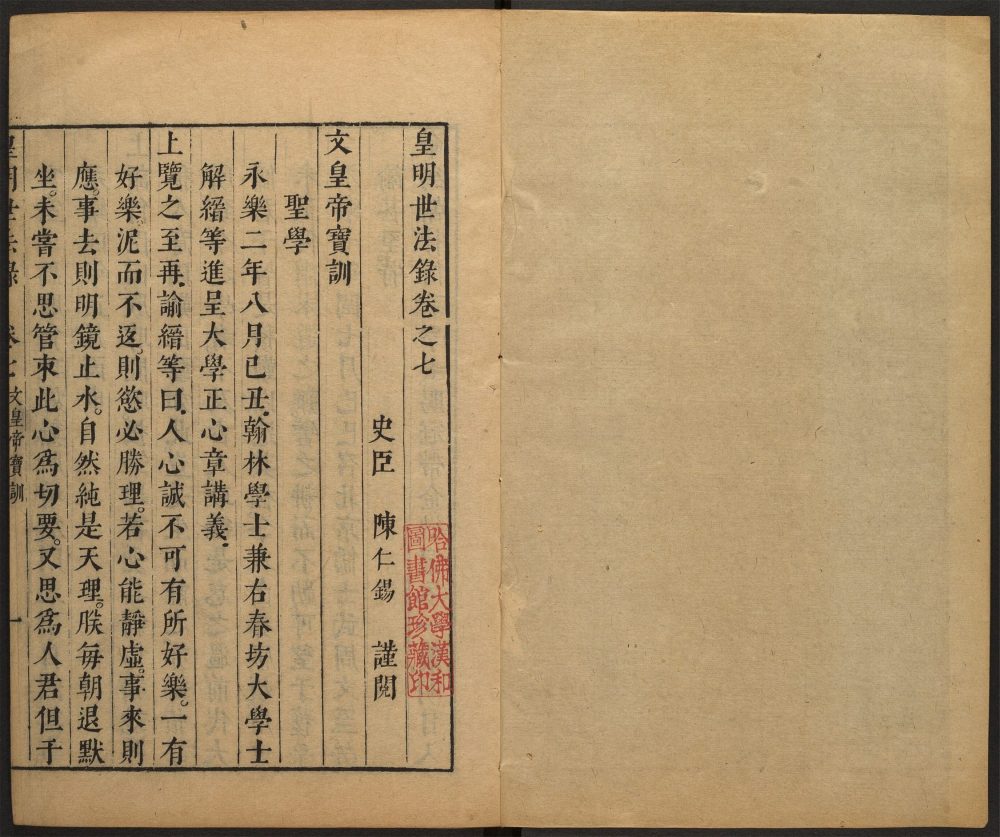 皇明世法錄卷之七
史臣 陳仁錫 謹閱
文皇帝寶訓
聖學
永樂二年八月己丑翰林學士兼右春坊大學士
解縉等進呈大學正心章講義
上覽之至再諭縉等曰人心誠不可有所好樂一有
好樂泥而不返則慾必勝理若心能靜虛事來則
應事去則明鏡止水自然純是天理朕每朝退默
坐未嘗不思管束此心爲切要又思爲人君但于
皇明世法錄 卷七 文皇帝寶訓 一
哈佛大學漢和
圖書館珍藏印